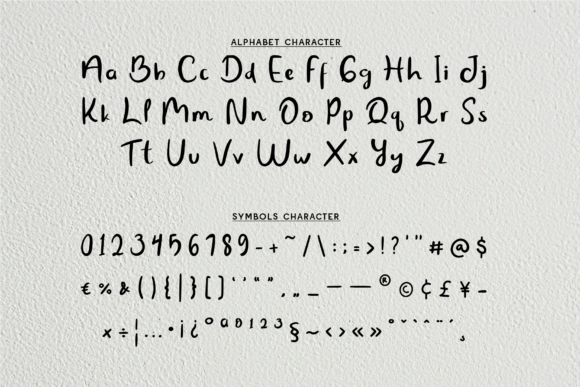 ALPHABET CHARACTER
Aa Bb Cc Dd Ee Ff Gg Hh Ii Jj
Kk Ll Mm Nn Oo Pp Qq Rr Ss
Tt Uu Vv Ww Xx Yy Zz
SYMBOLS CHARACTER
0123456789-+~/\:;=>!?'"#@$
€%&(){|}[]‘’“”‚„_—–®©¢£¥-
×÷¦…•¡¿ºªº¹²³§~‹›«»°ˇ`^¨´¸